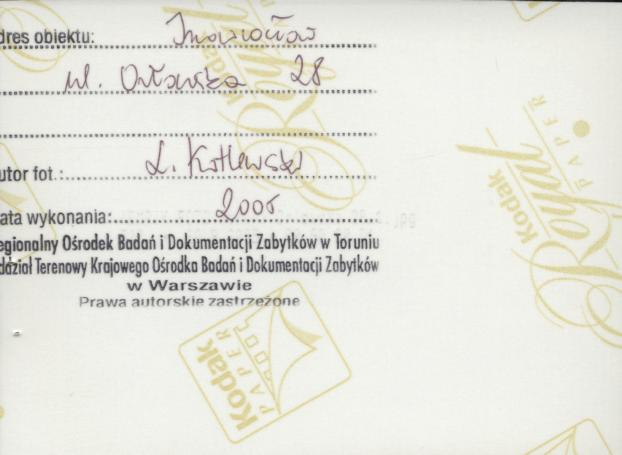 dres obiektu: Inowrocław
ul. Orłowska 28
utor fot.: L. Kotlewski
ata wykonania: 2005
egionalny Ośrodek Badań i Dokumentacji Zabytków w Toruniu
ddział Terenowy Krajowego Ośrodka Badań i Dokumentacji Zabytków
w Warszawie
Prawa autorskie zastrzeżone
Kodak
Royal
PAPER
Kodak
Royal
PAPER
Kodak
PAPER
Kodak